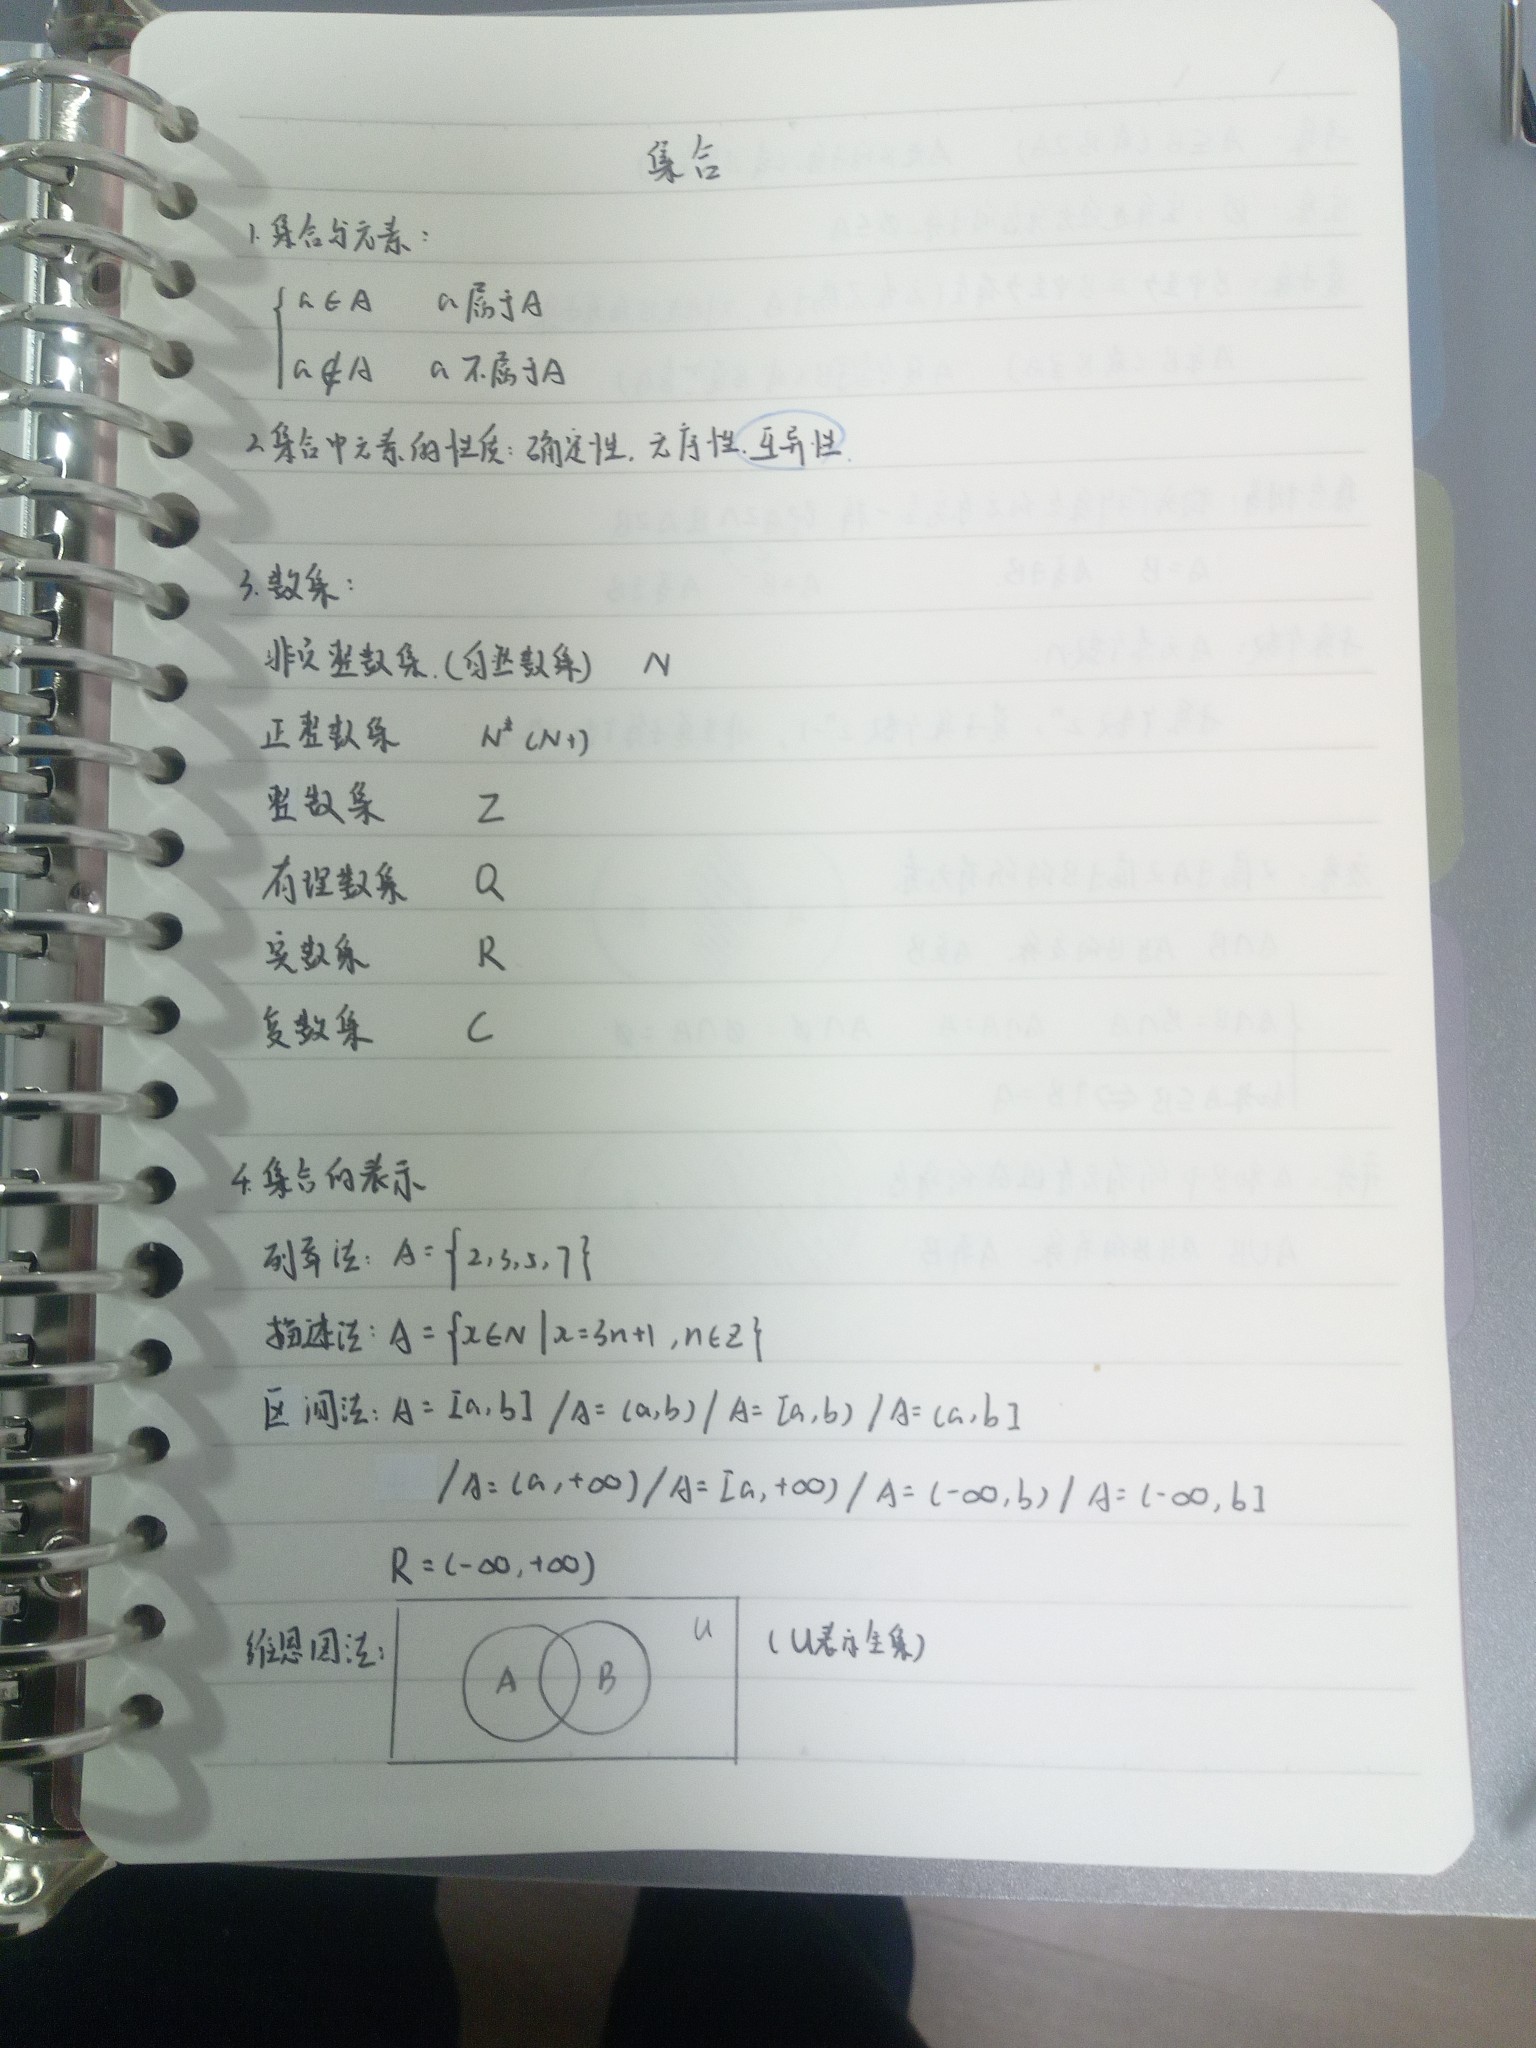 集合
1. 集合与元素:
a∈A a属于A
a∉A a不属于A
2. 集合中元素的性质: 确定性. 无序性. 互异性.
3. 数集:
非负整数集.(自然数集) N
正整数集 N*(N+)
整数集 Z
有理数集 Q
实数集 R
复数集 C
4. 集合的表示
列举法: A={2,3,5,7}
描述法: A={x∈N|x=3n+1,n∈Z}
区间法: A=[a,b] /A=(a,b)/ A=[a,b) /A=(a,b]
/A=(a,+∞)/A=[a,+∞)/A=(-∞,b)/A=(-∞,b]
R=(-∞,+∞)
维恩图法: A B U (U表示全集)